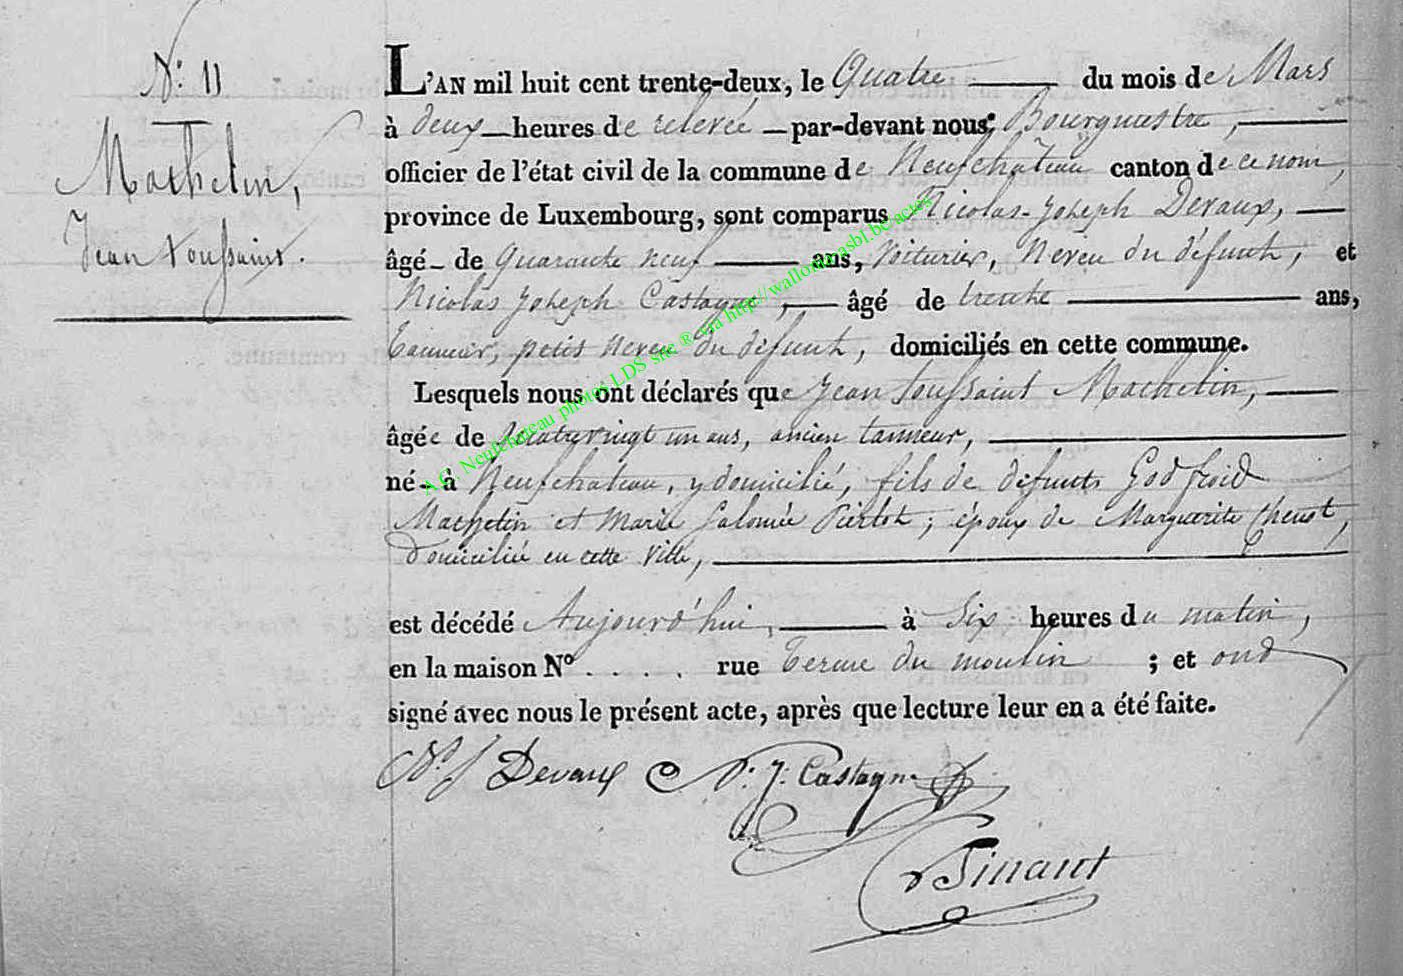 N.° 11
Machelin,
Jean Toussaint.
L'AN mil huit cent trente-deux, le Quatre du mois de Mars
à deux heures de relevée par-devant nous: Bourgmestre,
officier de l'état civil de la commune de Neufchâteau canton de ce nom,
province de Luxembourg, sont comparus Nicolas-Joseph Devaux,
âgé de Quarante neuf ans, Voiturier, Neveu du défunt, et
Nicolas Joseph Castagne, âgé de trente ans,
Tanneur, petit Neveu du défunt, domiciliés en cette commune.
Lesquels nous ont déclarés que Jean Toussaint Machelin,
âgée de Quatrevingt un ans, ancien tanneur,
né à Neufchateau, y domicilié, fils de défunts Godfroid
Machelin et Marie Salomée Pierlot; époux de Marguerite
Domiciliée en cette Ville,
est décédé Aujourd'hui, à Six heures du matin,
en la maison N° . . . . rue Terme du moulin ; et ont
signé avec nous le présent acte, après que lecture leur en a été faite.
N. J Devaux N. J. Castagne
Pinant
A.C. Neufchateau photos LDS site ® via http://wallonia.asbl.be/actes